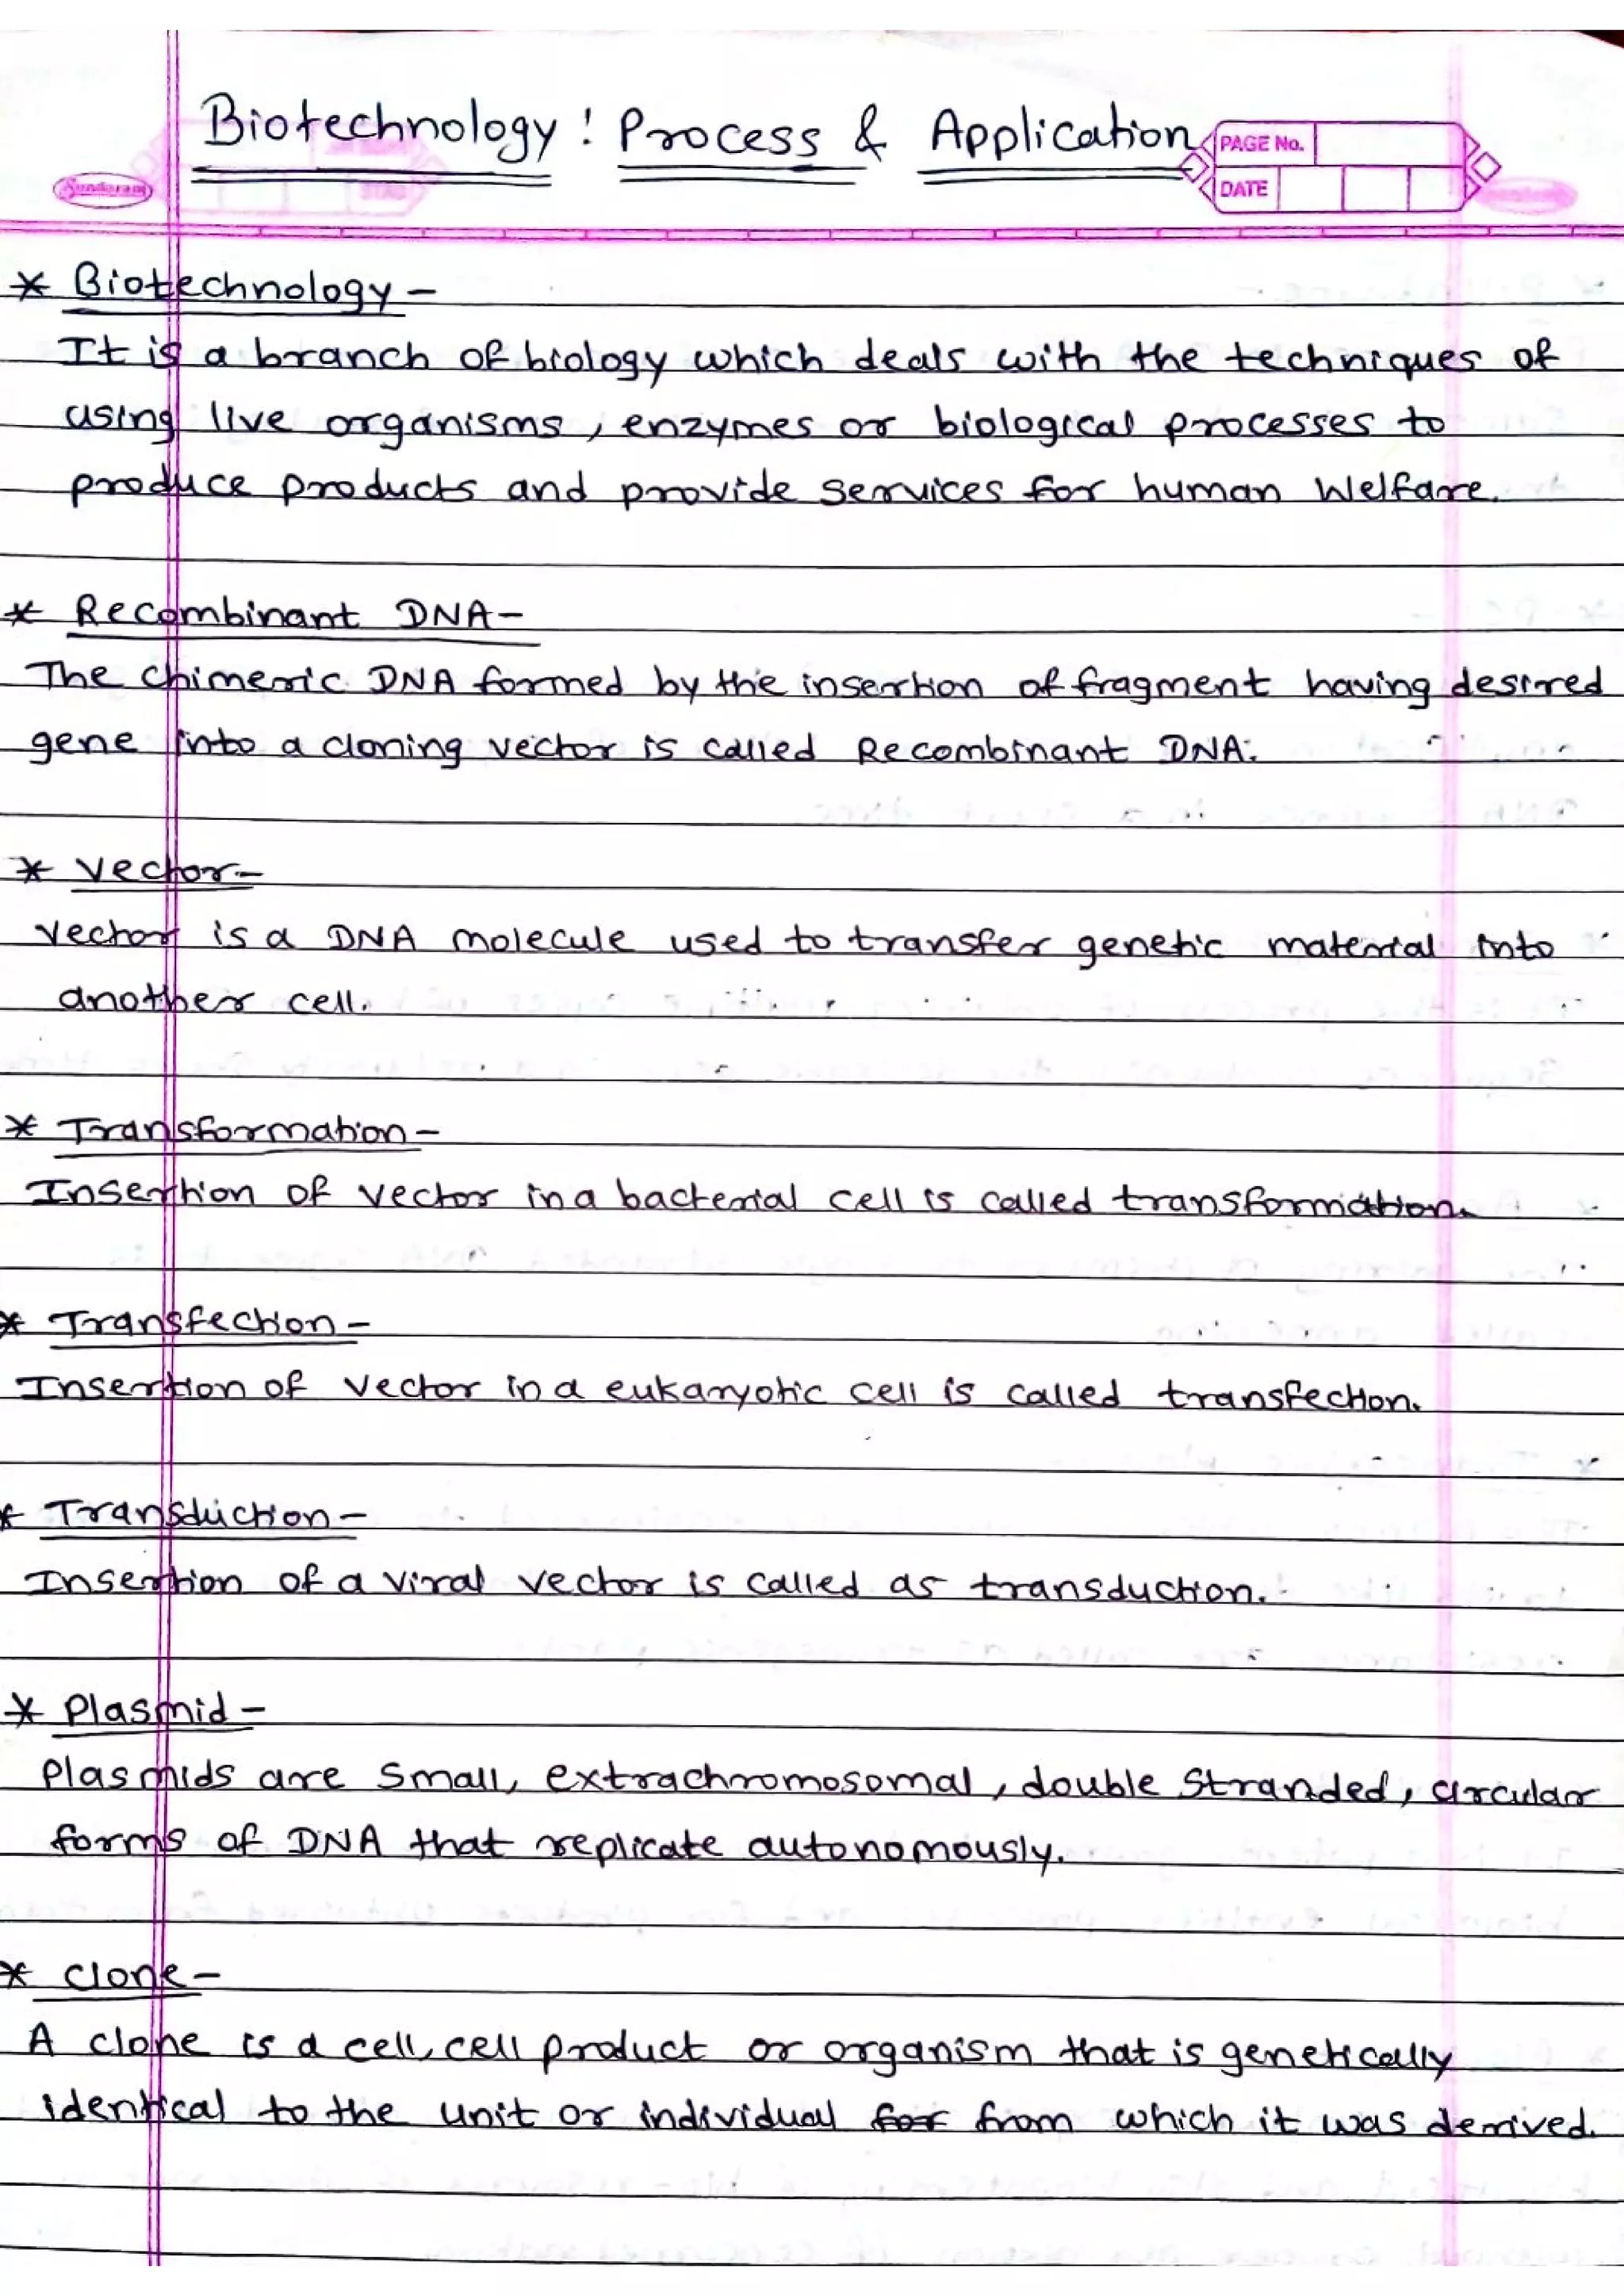 Biotechnology : Process & Application
Sundaram
PAGE No.
DATE
* Biotechnology -
It is a branch of biology which deals with the techniques of
using live organisms, enzymes or biological processes to
produce products and provide services for human welfare.
* Recombinant DNA -
The chimeric DNA formed by the insertion of fragment having desired
gene into a cloning vector is called Recombinant DNA.
* Vector -
Vector is a DNA molecule used to transfer genetic material into
another cell.
* Transformation -
Insertion of vector in a bacterial cell is called transformation.
* Transfection -
Insertion of vector in a eukaryotic cell is called transfection.
* Transduction -
Insertion of a viral vector is called as transduction.
* Plasmid -
Plasmids are small, extrachromosomal, double stranded, circular
forms of DNA that replicate autonomously.
* Clone -
A clone is a cell, cell product or organism that is genetically
identical to the unit or individual for from which it was derived.